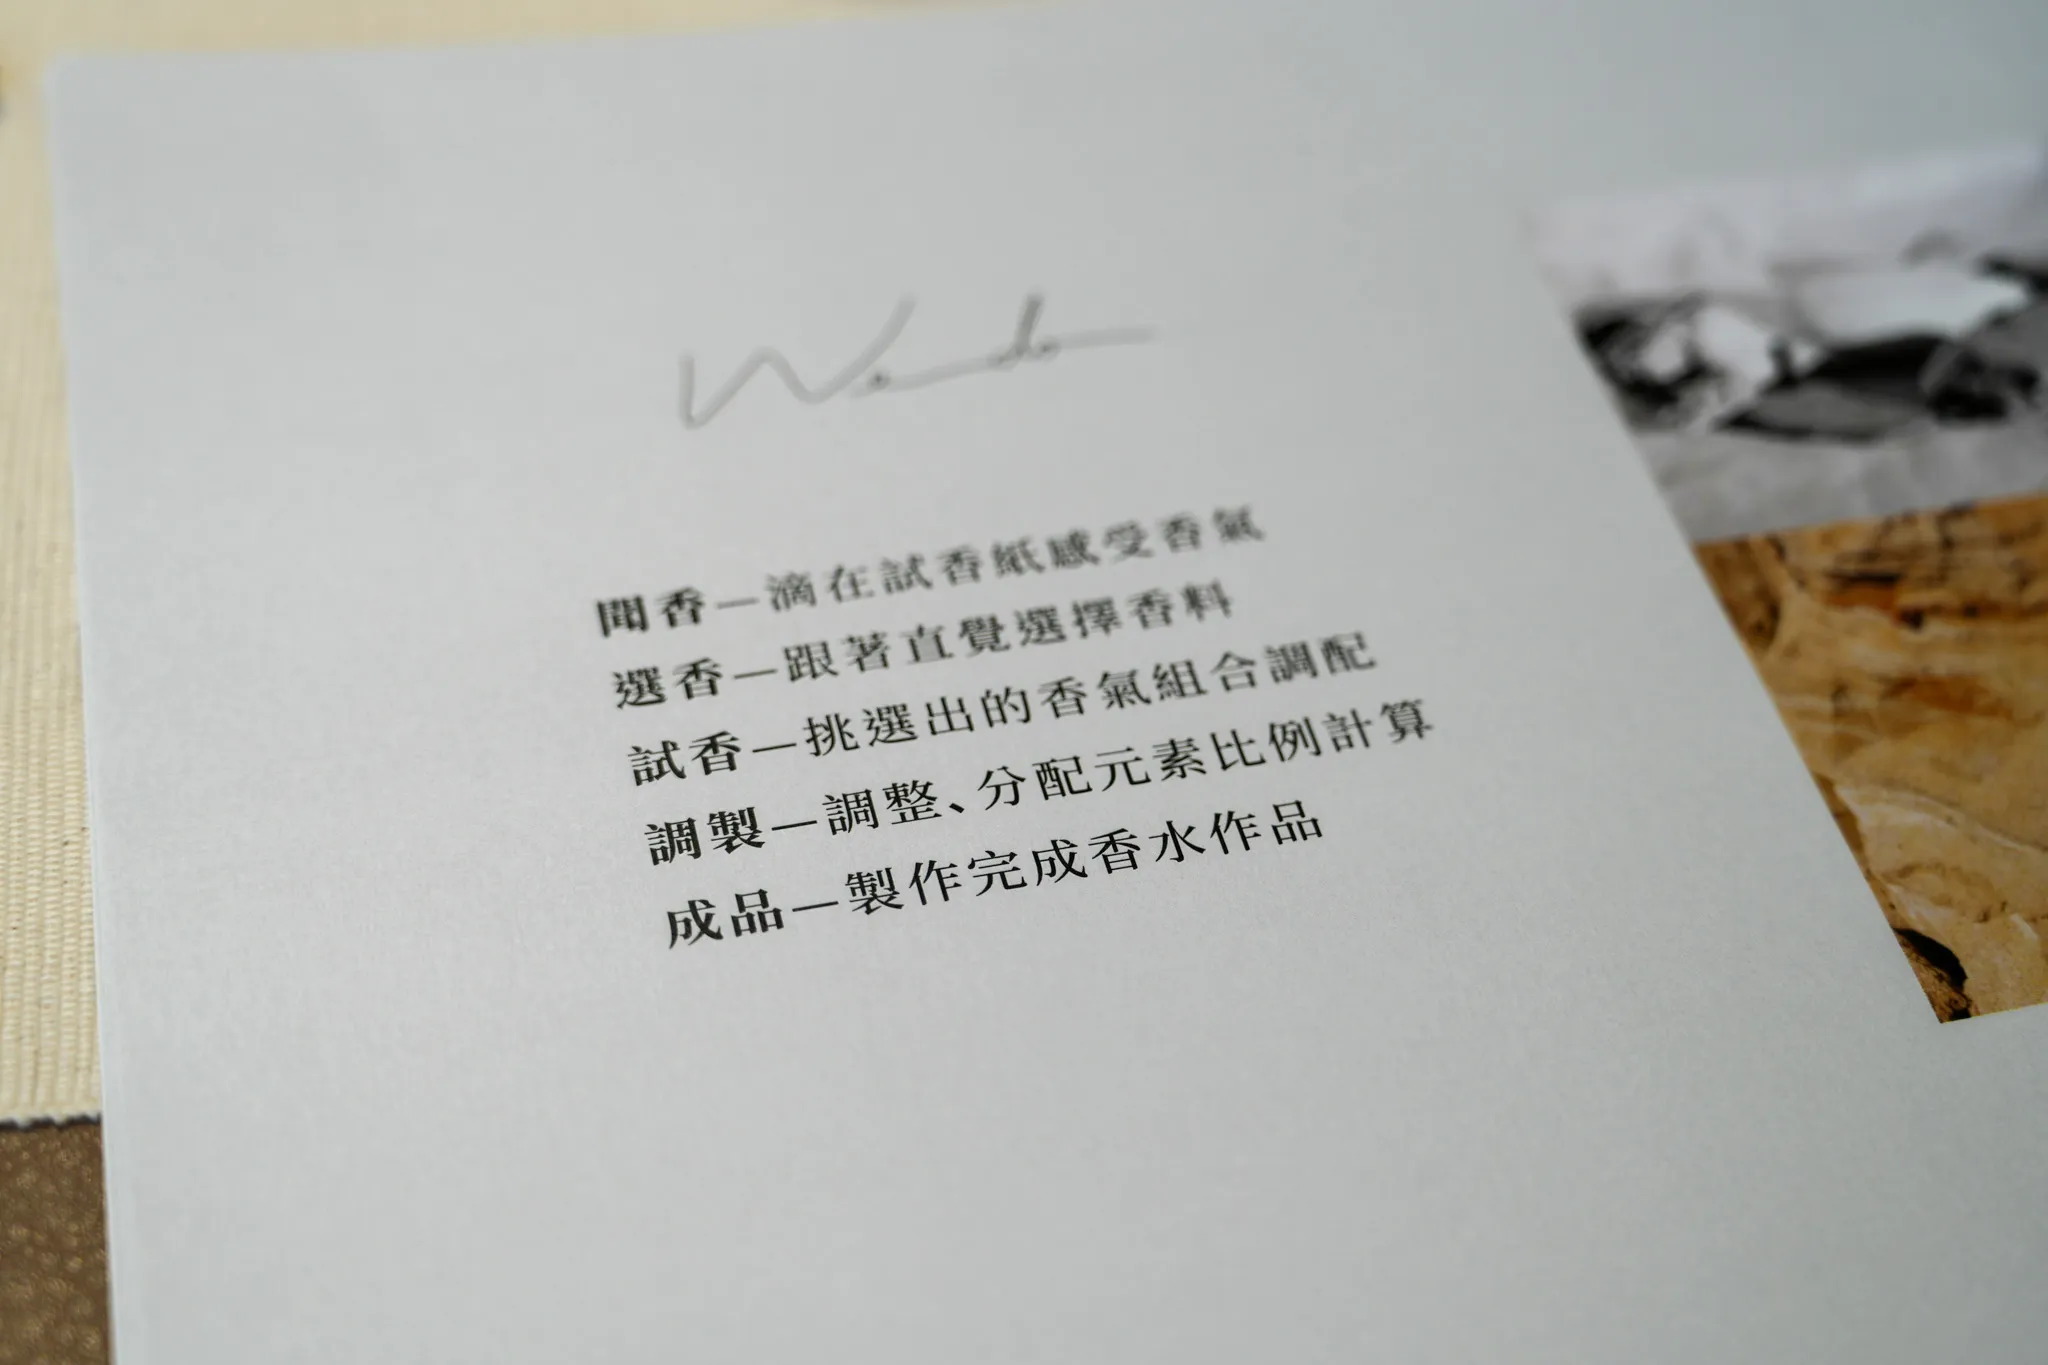 聞香—滴在試香紙感受香氣
選香—跟著直覺選擇香料
試香—挑選出的香氣組合調配
調製—調整、分配元素比例計算
成品—製作完成香水作品